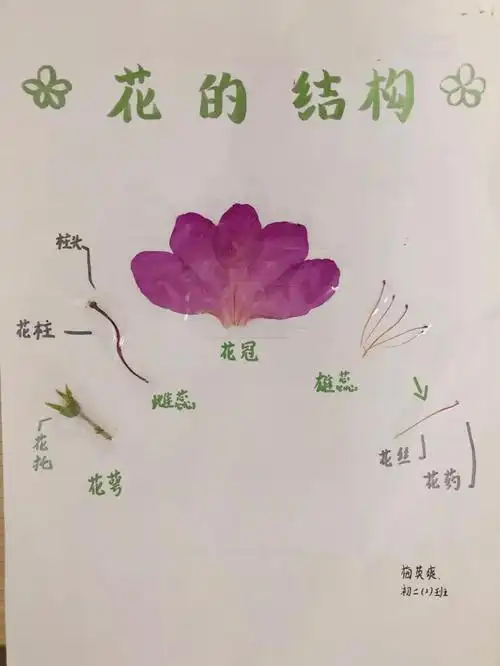 花的结构
柱头
花柱
花冠
雌蕊
雄蕊
花托
花丝
花药
花萼
梅英爽
初二(2)班